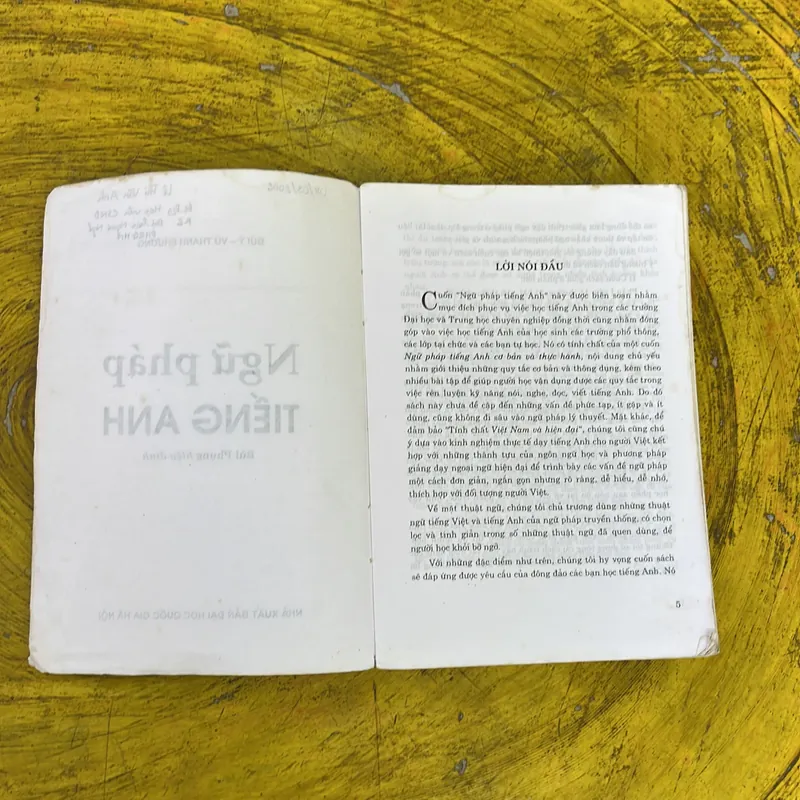 LỜI NÓI ĐẦU
Cuốn "Ngữ pháp tiếng Anh" này được biên soạn nhằm
mục đích phục vụ việc học tiếng Anh trong các trường
Đại học và Trung học chuyên nghiệp đồng thời cũng nhằm đóng
góp vào việc học tiếng Anh của học sinh các trường phổ thông,
các lớp tại chức và các bạn tự học. Nó có tính chất của một cuốn
Ngữ pháp tiếng Anh cơ bản và thực hành, nội dung chủ yếu
nhằm giới thiệu những quy tắc cơ bản và thông dụng, kèm theo
nhiều bài tập để giúp người học vận dụng được các quy tắc trong
việc rèn luyện kỹ năng nói, nghe, đọc, viết tiếng Anh. Do đó
sách này chưa đề cập đến những vấn đề phức tạp, ít gặp và ít
dùng, cũng không đi sâu vào ngữ pháp lý thuyết. Mặt khác, để
đảm bảo "Tính chất Việt Nam và hiện đại", chúng tôi cũng chú
ý dựa vào kinh nghiệm thực tế dạy tiếng Anh cho người Việt kết
hợp với những thành tựu của ngôn ngữ học và phương pháp
giảng dạy ngoại ngữ hiện đại để trình bày các vấn đề ngữ pháp
một cách đơn giản, ngắn gọn nhưng rõ ràng, dễ hiểu, dễ nhớ,
thích hợp với đối tượng người Việt.
Về mặt thuật ngữ, chúng tôi chủ trương dùng những thuật
ngữ tiếng Việt và tiếng Anh của ngữ pháp truyền thống, có chọn
lọc và tinh giản trong số những thuật ngữ đã quen dùng, để
người học khỏi bỡ ngỡ.
Với những đặc điểm như trên, chúng tôi hy vọng cuốn sách
sẽ đáp ứng được yêu cầu của đông đảo các bạn học tiếng Anh. Nó
5
Ngữ pháp
TIẾNG ANH
Bùi Phụng hiệu đính
NHÀ XUẤT BẢN ĐẠI HỌC QUỐC GIA HÀ NỘI